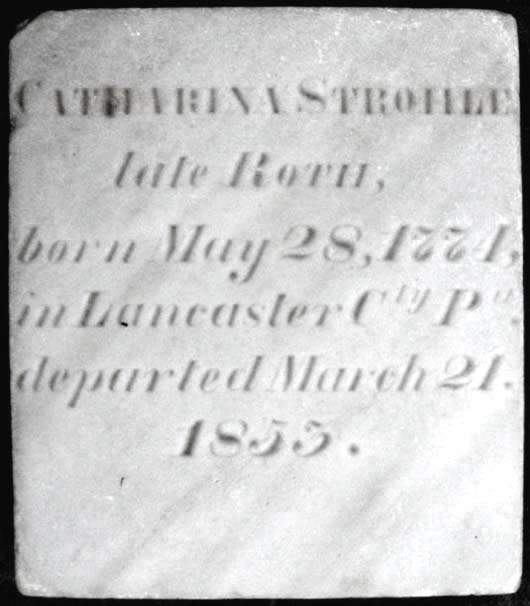 CATHARINA STROHLE
late ROTH,
born May 28, 1774,
in Lancaster Cty Pa.
departed March 21.
1855.